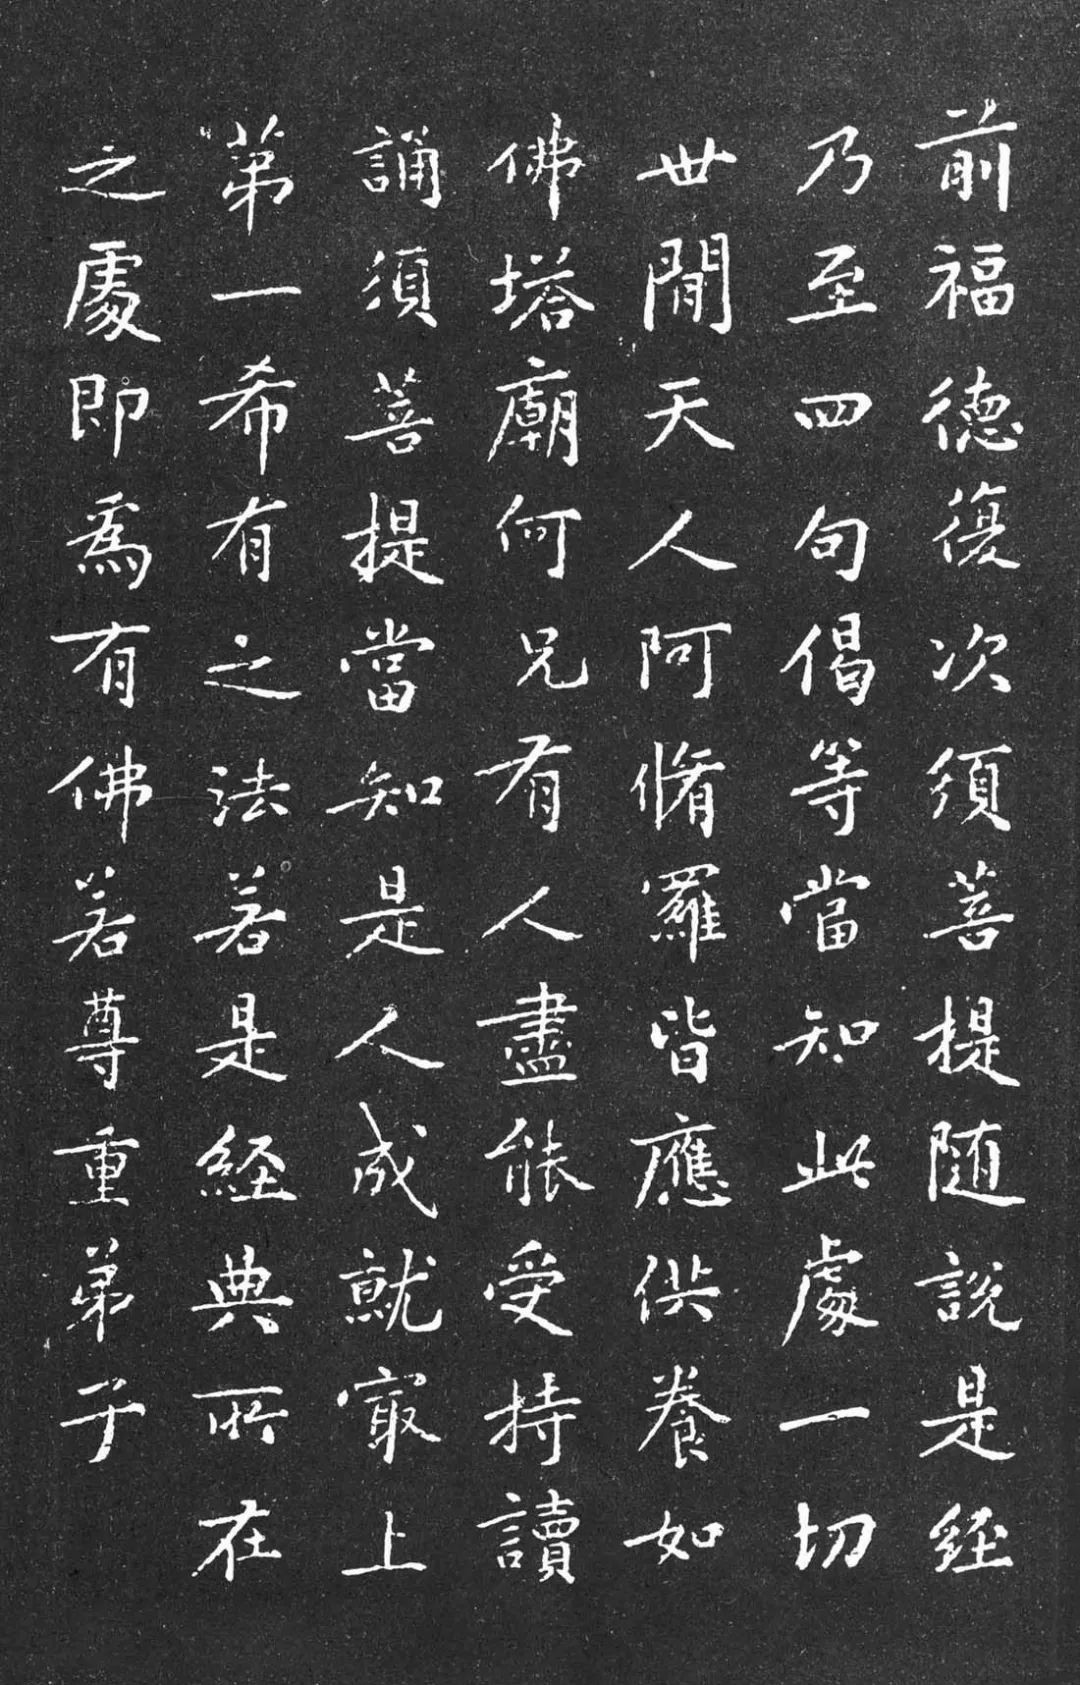 前福德復次須菩提随說是經
乃至四句偈等當知此處一切
世間天人阿脩羅皆應供養如
佛塔廟何況有人盡能受持讀
誦須菩提當知是人成就㝡上
第一希有之法若是經典所在
之處即為有佛若尊重弟子